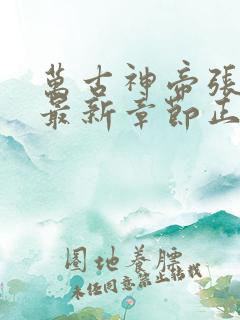 萬古神帝張
最新章節正
圈地養膘
未經同意禁止轉載